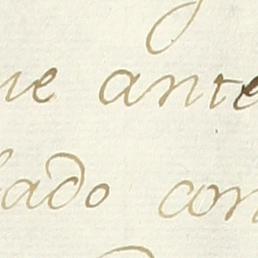 ue ante
lado con